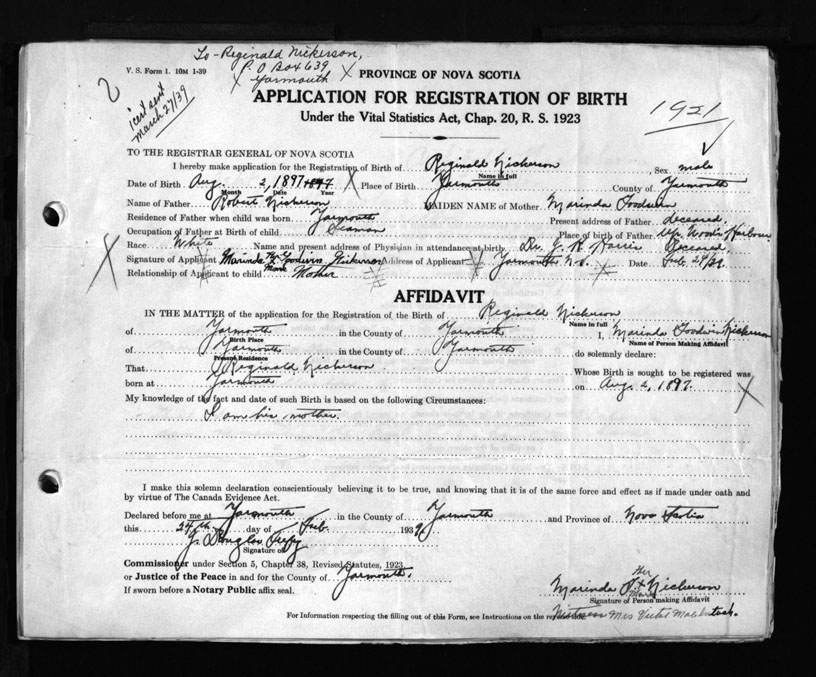 To - Reginald Nickerson,
P.O Box 639
X Yarmouth X
V. S. Form 1. 10M 1-39
PROVINCE OF NOVA SCOTIA
2
1 cert sent
March 27/39
APPLICATION FOR REGISTRATION OF BIRTH
1921
Under the Vital Statistics Act, Chap. 20, R. S. 1923
TO THE REGISTRAR GENERAL OF NOVA SCOTIA
I hereby make application for the Registration of Birth of Reginald Nickerson Sex male
Name in full
Date of Birth Aug. 2, 1897 X Place of Birth Yarmouth County of Yarmouth
Month Date Year
Name of Father Robert Nickerson MAIDEN NAME of Mother Marinda Goodwin
Residence of Father when child was born Yarmouth Present address of Father deceased
Occupation of Father at Birth of child Seaman Place of birth of Father Woods Harbour
Race White Name and present address of Physician in attendance at birth Dr. Harris Deceased
Signature of Applicant Marinda Goodwin Nickerson Address of Applicant Yarmouth N.S. Date Feb. 24/39
Relationship of Applicant to child Mother
mark
AFFIDAVIT
IN THE MATTER of the application for the Registration of the Birth of Reginald Nickerson
Name in full
of Yarmouth in the County of Yarmouth I, Marinda Goodwin Nickerson
Birth Place Name of Person Making Affidavit
of Yarmouth in the County of Yarmouth do solemnly declare:
Present Residence
That Reginald Nickerson Whose Birth is sought to be registered was
born at Yarmouth on Aug 2, 1897. X
My knowledge of the fact and date of such Birth is based on the following Circumstances:
I am his mother.
I make this solemn declaration conscientiously believing it to be true, and knowing that it is of the same force and effect as if made under oath and
by virtue of The Canada Evidence Act.
Declared before me at Yarmouth in the County of Yarmouth and Province of Nova Scotia
this 24th day of Feb. 1939
J. Douglas
Signature of
Commissioner under Section 5, Chapter 38, Revised Statutes, 1923
or Justice of the Peace in and for the County of Yarmouth.
If sworn before a Notary Public affix seal.
Her
Marinda X Nickerson
mark
Signature of Person making Affidavit
For Information respecting the filling out of this Form, see Instructions on the reverse side.
Witness Mrs